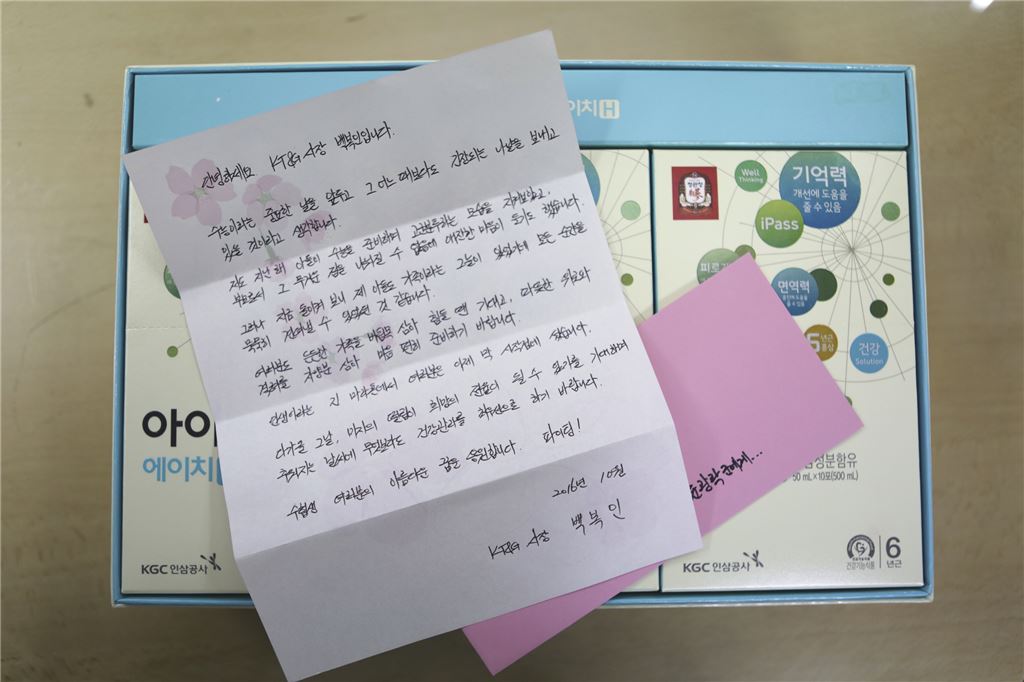 이치H
안녕하세요 KT&G 사장 백복인입니다.
수능이라는 중요한 날을 앞두고 그 어느 때보다도 긴장되는 나날을 보내고
있을 것이라고 생각합니다.
저도 지난 해 아들이 수능을 준비하며 고군분투하는 모습을 지켜보았고,
부모로서 그 무거운 짐을 나눠질 수 없음에 애잔한 마음이 들기도 했습니다.
그러나 지금 돌이켜 보니 제 아들도 가족이라는 그늘이 있었기에 모든 순간을
묵묵히 견뎌낼 수 있었던 것 같습니다.
여러분도 든든한 가족을 버팀목 삼아 힘들 땐 기대고, 따뜻한 위로와
격려를 자양분 삼아 마음 편히 준비하기 바랍니다.
인생이라는 긴 마라톤에서 여러분은 이제 막 시작점에 섰습니다.
다가올 그날, 마지막 떨림이 희망의 전율이 될 수 있기를 기대하며
추워지는 날씨에 무엇보다도 건강관리를 최우선으로 하기 바랍니다.
수험생 여러분의 아름다운 꿈을 응원합니다. 파이팅!
2016년 10월
KT&G 사장 백복인
정관장
Well
Thinking
기억력
개선에 도움을
줄 수 있음
iPass
피로
면역력
증진에 도움을
줄 수 있음
6년근
홍삼
건강
Solution
아이
에이치
삼성분함유
50 mL×10포(500 mL)
군에게...
KGC 인삼공사
KGC 인삼공사
건강기능식품
6
년근